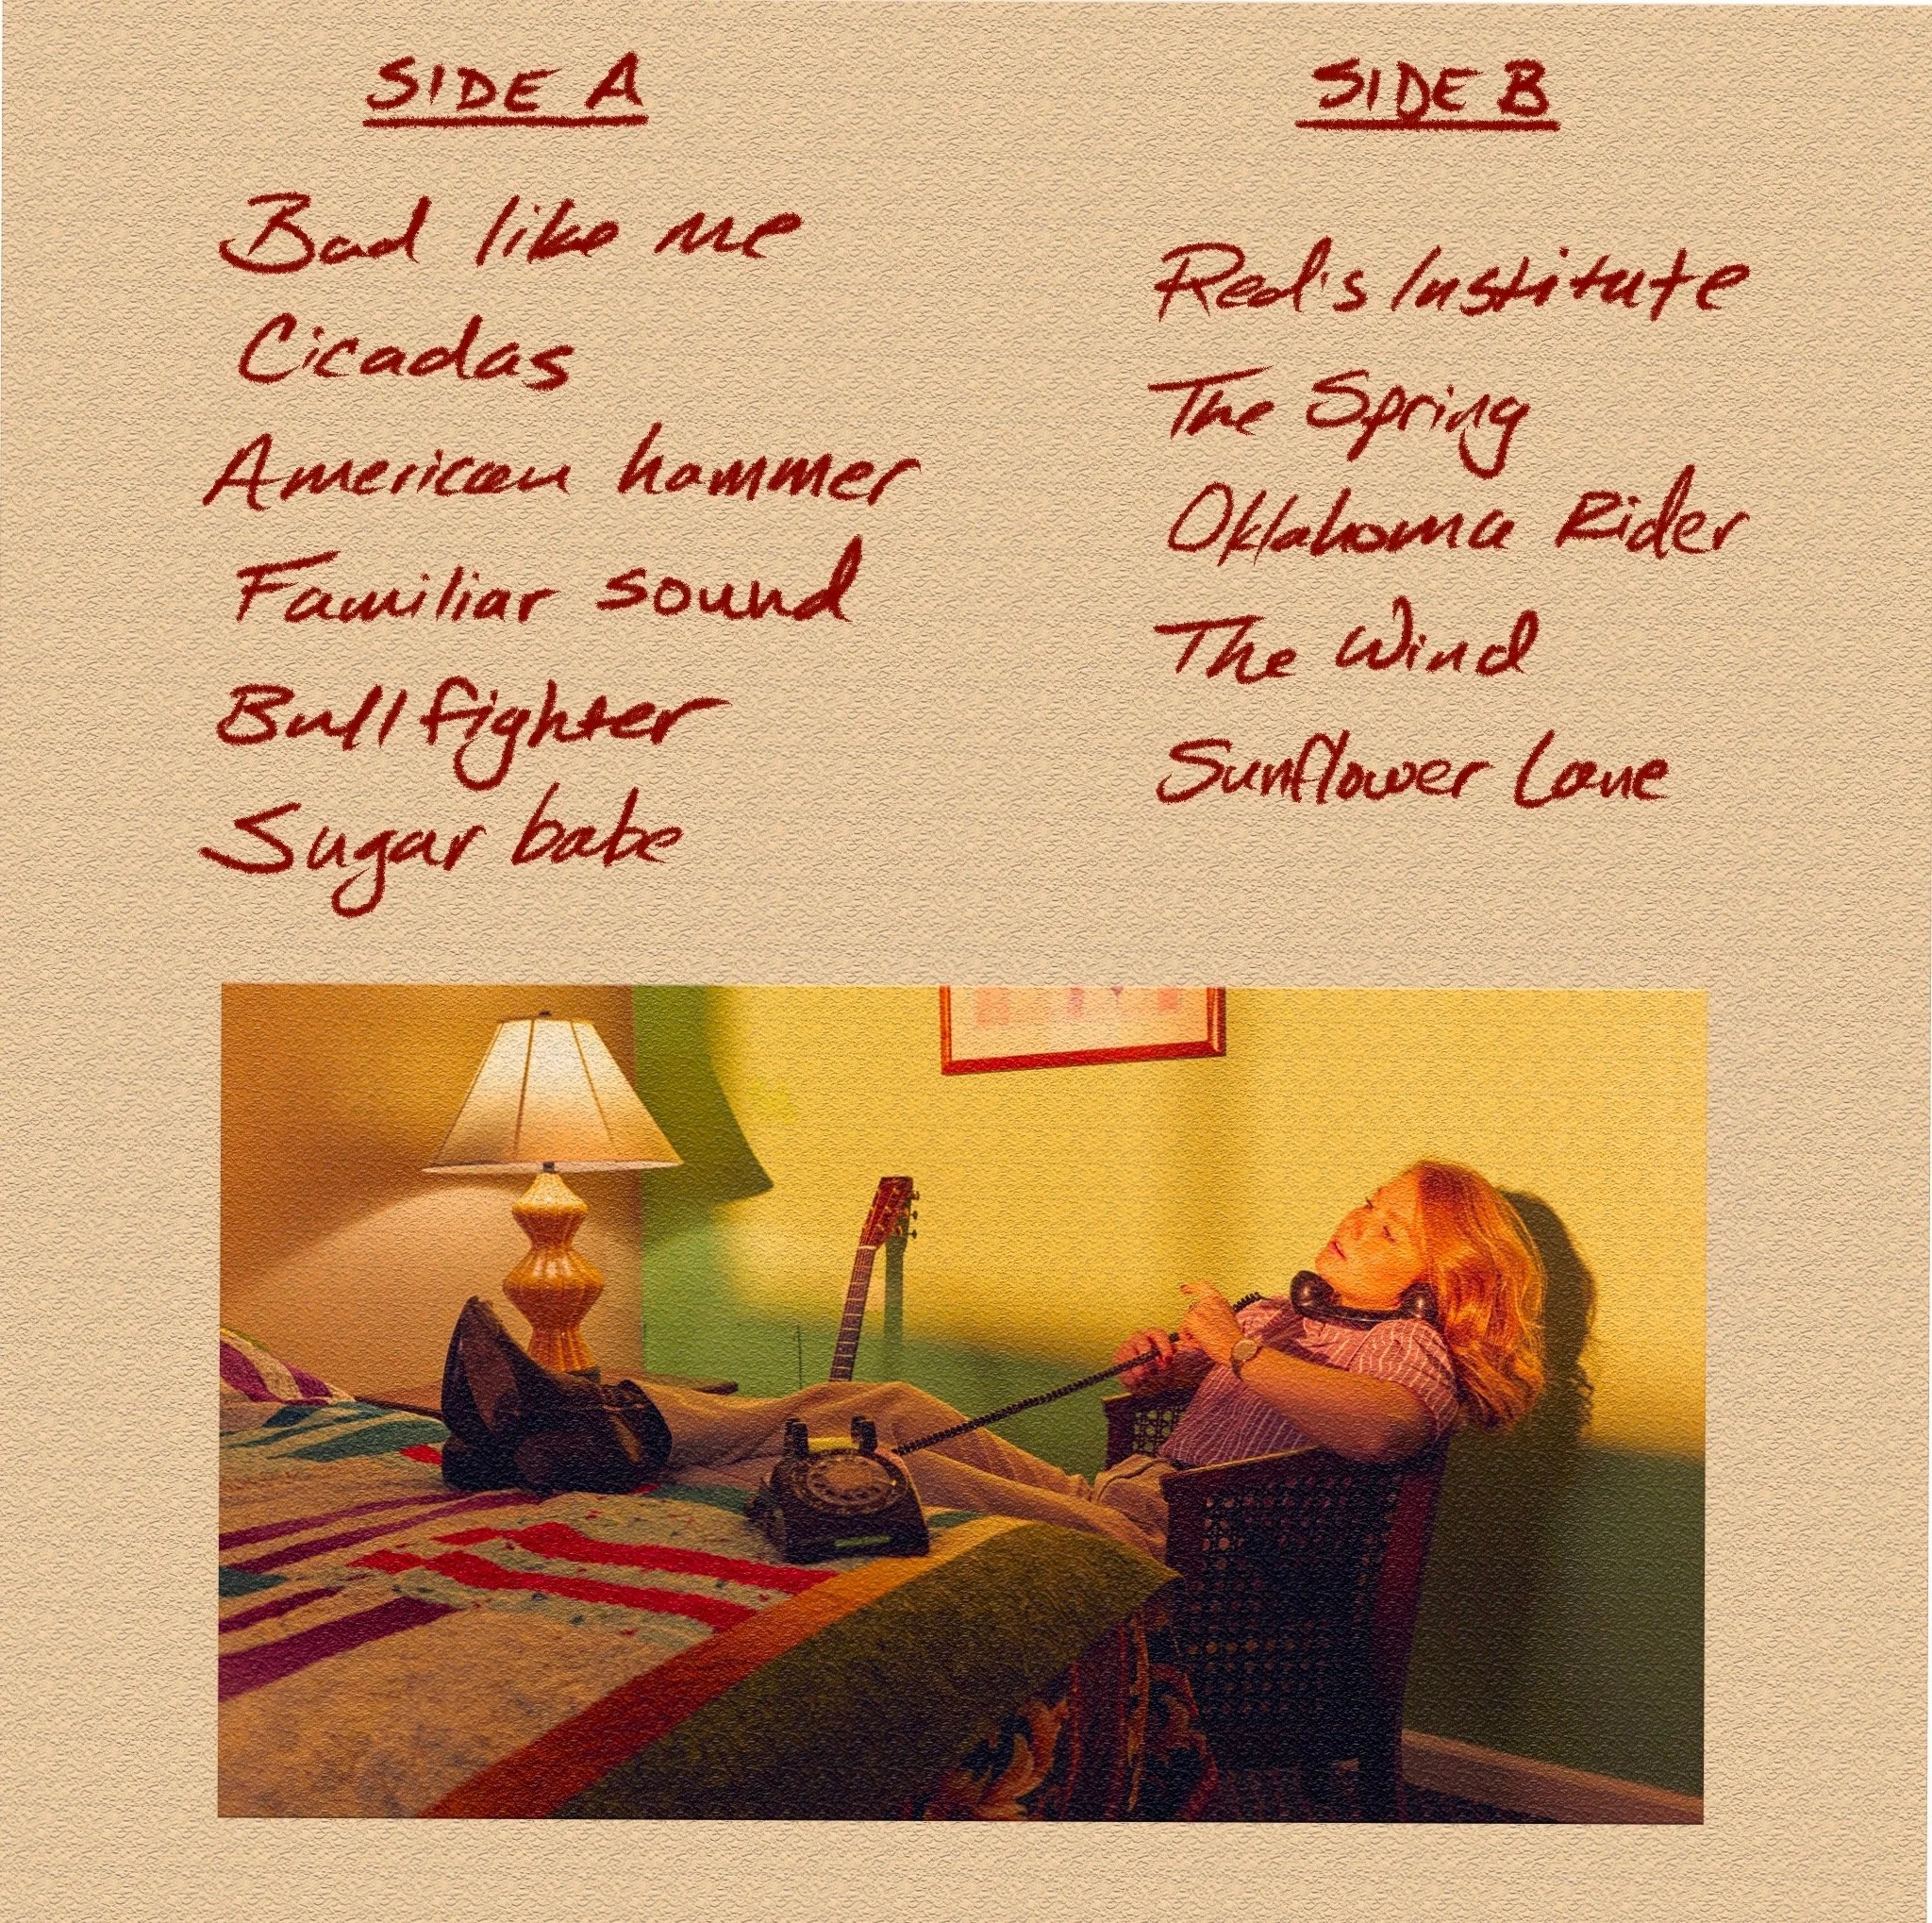 SIDE A
Bad like me
Cicadas
American hammer
Familiar sound
Bullfighter
Sugar babe
SIDE B
Red's Institute
The Spring
Oklahoma Rider
The Wind
Sunflower Lane